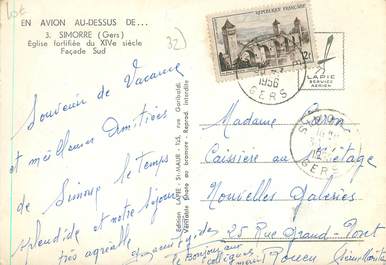 EN AVION AU-DESSUS DE...
3. SIMORRE (Gers)
Eglise fortifiée du XIVe siècle
Façade Sud
32)
REPUBLIQUE FRANÇAISE
1956
GERS
LAPIE
SERVICE
AERIEN
Souvenir de Vacance
et meilleures Amitiées
de Simone le temps
splendide et notre séjour
très agréable
Edition LAPIE - St-MAUR - 125, rue Garibaldi
Véritable Photo au bromure - Reprod. interdite
GERS
Madame Caron
Caissière au Métage
Nouvelles Galeries
25 Rue Grand-Pont
Rouen
le Bonjour aux
collègues